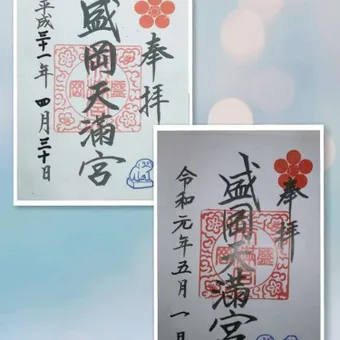 奉拝
盛岡天満宮
平成三十一年 四月三十日
奉拝
盛岡天満宮
令和元年五月一日